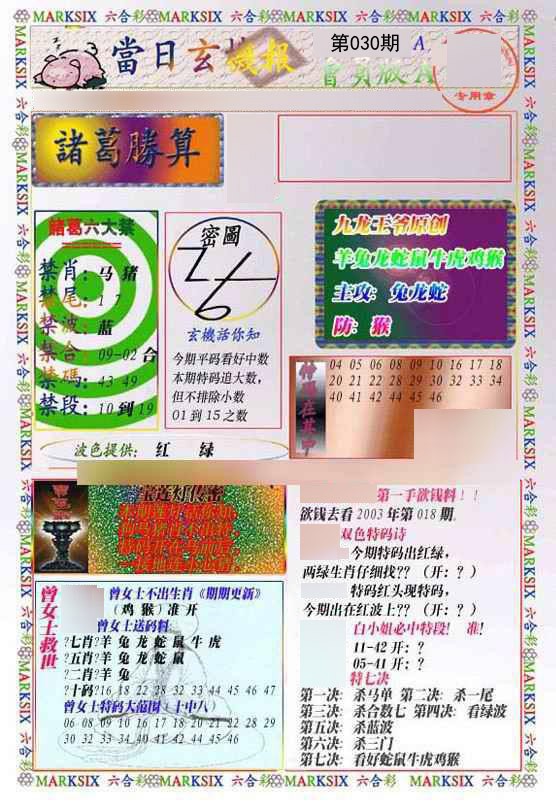 MARKSIX 六合彩 MARKSIX 六合彩 MARKSIX 六合彩 MARKSIX 六合彩 MARKSIX
當日玄機報
第030期 A
會員版A
专用章
諸葛勝算
諸葛六大禁
禁肖：马 猪
禁尾：1 7
禁波：蓝
禁合：09-02 合
禁碼：43 49
禁段：10 到 19
密圖
玄機話你知
今期平码看好中数
本期特码追大数，
但不排除小数
01 到 15 之数
九龙王爷原创
羊兔龙蛇鼠牛虎鸡猴
主攻：兔龙蛇
防：猴
04 05 06 08 09 10 16 17 18
20 21 22 28 29 30 32 33 34
40 41 42 44 45 46
波色提供： 红 绿
宝莲灯传密
第一手欲钱料！！
欲钱去看 2003 年第 018 期。
双色特码诗
今期特码出红绿，
两绿生肖仔细找?? （开：？）
特码红头现特码，
今期出在红波上?? （开：？）
白小姐必中特段！ 准!
11-42 开：？
05-41 开：？
特七决
第一决：杀马单 第二决：杀一尾
第三决：杀合数七 第四决：看绿波
第五决：杀蓝波
第六决：杀三门
第七决：看好蛇鼠牛虎鸡猴
曾女士救世
曾女士不出生肖《期期更新》
（鸡 猴）准 开
曾女士送码料：
?七肖?羊 兔 龙 蛇 鼠 牛 虎
?五肖?羊 兔 龙 蛇 鼠
?二肖?羊 兔
?十码?16 18 22 28 32 33 44 45 46 47
曾女士特码大范围（十中八）
06 08 09 10 16 17 18 20 21 22 28 29
30 32 33 34 40 41 42 44 45 46
MARKSIX 六合彩 MARKSIX 六合彩 MARKSIX 六合彩 MARKSIX 六合彩 MARKSIX